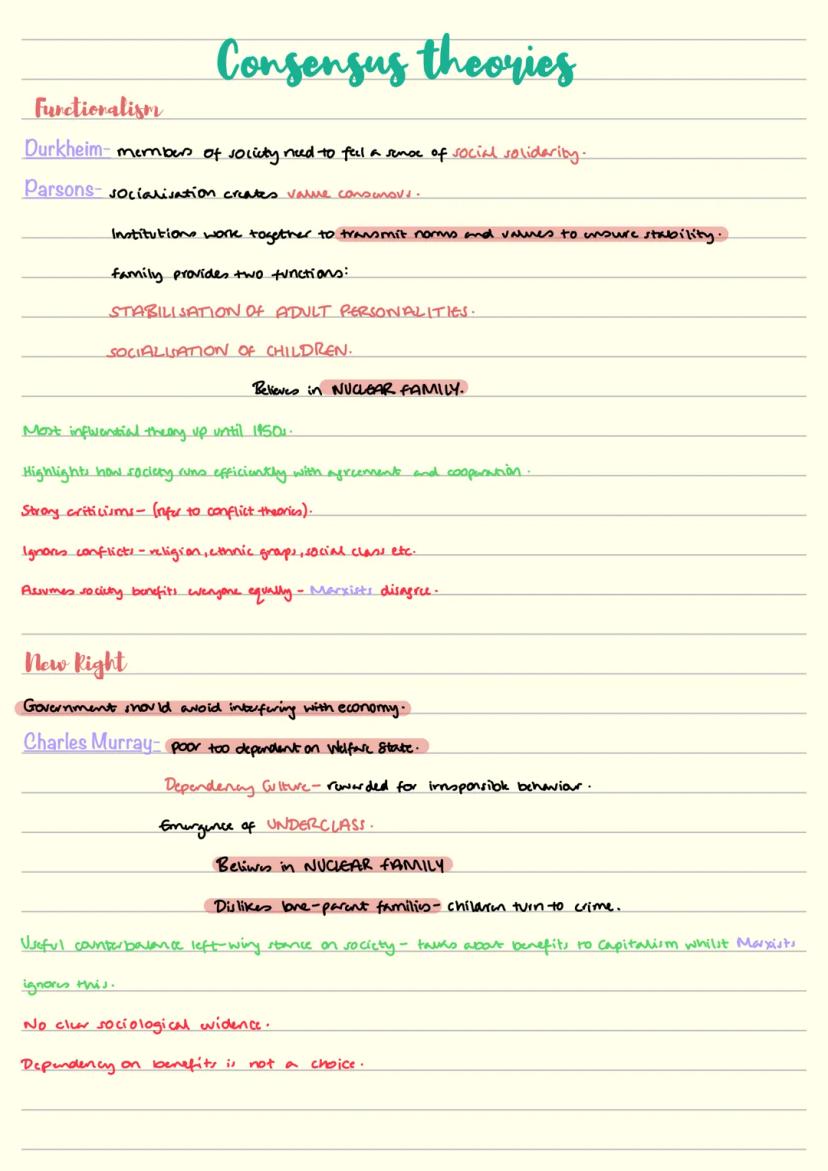 Consensus theories
Functionalism
Durkheim- members of society need to feel a sense of social solidarity.
Parsons- socialisation creates value consensus.
Institutions work together to transmit norms and values to ensure stability.
family provides two functions:
STABILISATION OF ADULT PERSONALITIES.
SOCIALISATION OF CHILDREN.
Believes in NUCLEAR FAMILY.
Most influential theory up until 1950s.
Highlights how society runs efficiently with agreement and cooperation.
Strong criticisms- (refer to conflict theories).
Ignores conflicts - religion, ethnic groups, social class etc.
Assumes society benefits everyone equally - Marxists disagree.
New Right
Government should avoid interfering with economy.
Charles Murray- poor too dependent on Welfare State.
Dependency Culture- rewarded for irresponsible behaviour.
Emergence of UNDERCLASS.
Believes in NUCLEAR FAMILY
Dislikes lone-parent families- children turn to crime.
Useful counterbalance left-wing stance on society - talks about benefits to Capitalism whilst Marxists
ignores this.
No clear sociological evidence.
Dependency on benefits is not a choice.